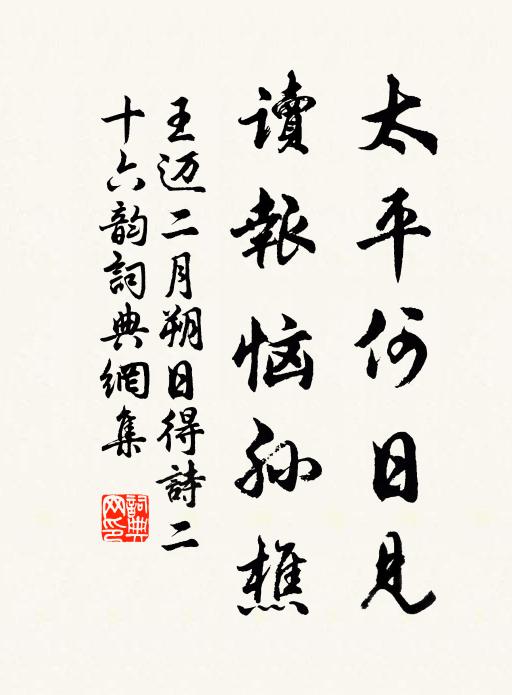 太平何日見
讀報惱孫樵
王迈二月朔日得詩二
十六韵詞典網集
詞典
网印